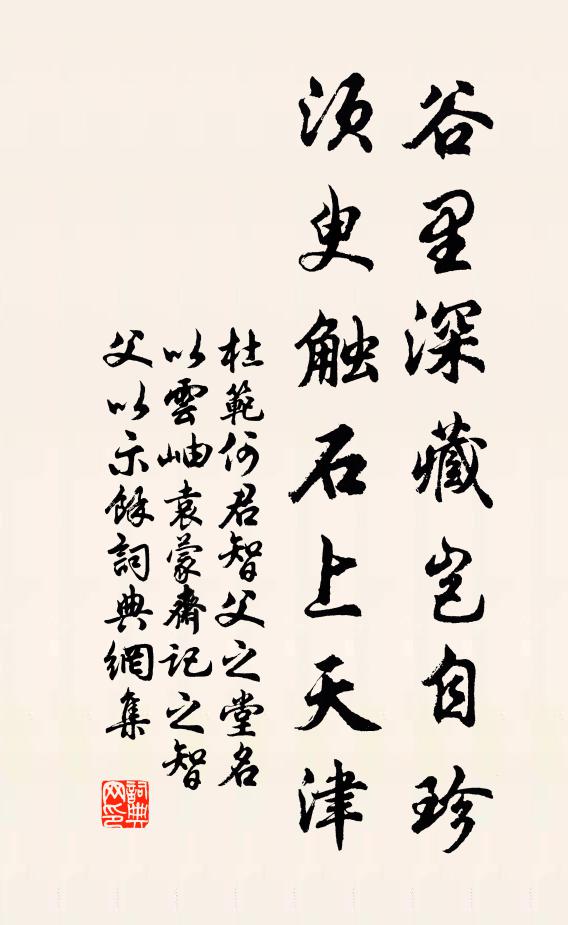 谷里深藏岂自珍
须臾触石上天津
杜範何君智父之堂名
以雲岫袁蒙齋記之智
父以示餘詞典網集
詞典網印